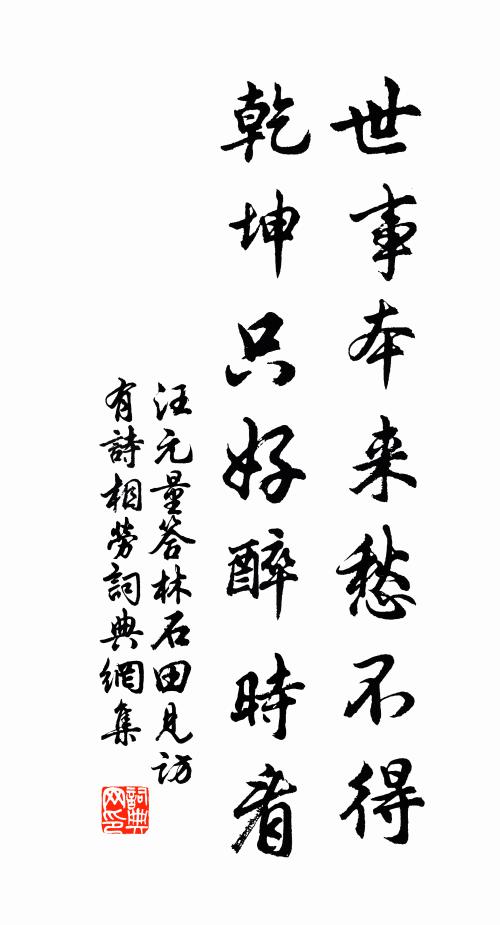 世事本来愁不得
乾坤只好醉時看
汪元量答林石田見訪
有詩相勞詞典網集
詞典
网印